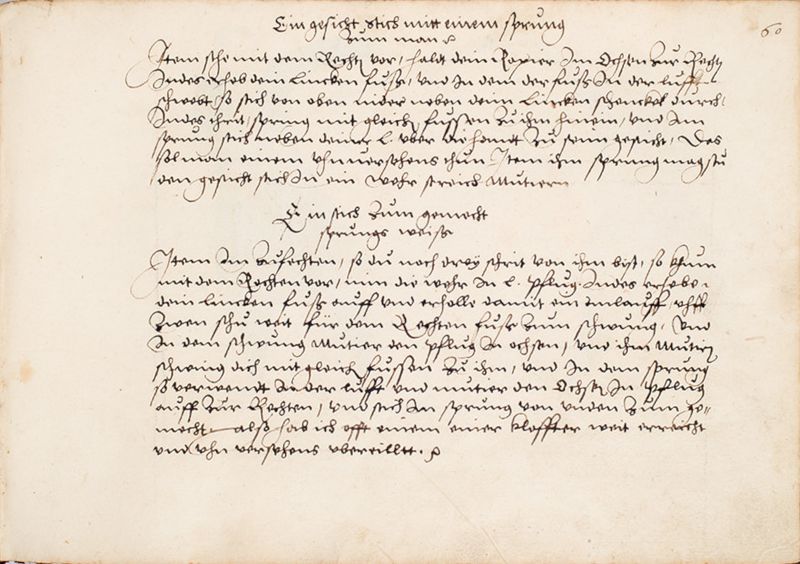 60
Ein gesicht stich mitt einem sprung
zum man
Item stehe mit dem Rechten vor, halt dein Rapier Im Ochsen zur Rechten
Indes erheb dein Lincken fuß, und In dem der fuß In der lufft
schwebt so stich von oben nider neben deim Lincken schenckel durch,
Indes ihrit, spring mit gleich fussen zu ihm hinein, und Am
sprung stich neben deiner L. uber die handt zu seim gesicht, Das
sol man einem unversehens thun Item ihm sprung magstu
den gesicht stich In ein wehr streich Mutiern
Ein stich zum gemecht
sprungs weiß
Item Im zufechten, so du noch drey schrit von ihm bist, so khum
mit dem Rechten vor, nim die wehr In L. Pflug. Indes erhebe
dein lincken fuß auff und erholle damit ein anlauff, uff
zwen schu weit für dem Rechten fuß zum schwung, und
In dem schwung Mutier den Pflug In ochsen, und ihm Mutirn
schwing dich mit gleich fussen zu ihm, und In dem sprung
so verwendt In der lufft und mutier den Ochsen In Pflug
auff zur Rechten, und stich Im sprung von unden zum ge-
mecht also hab ich offt einem einer klaffter weit erreicht
und uhn versehens ubereillt.